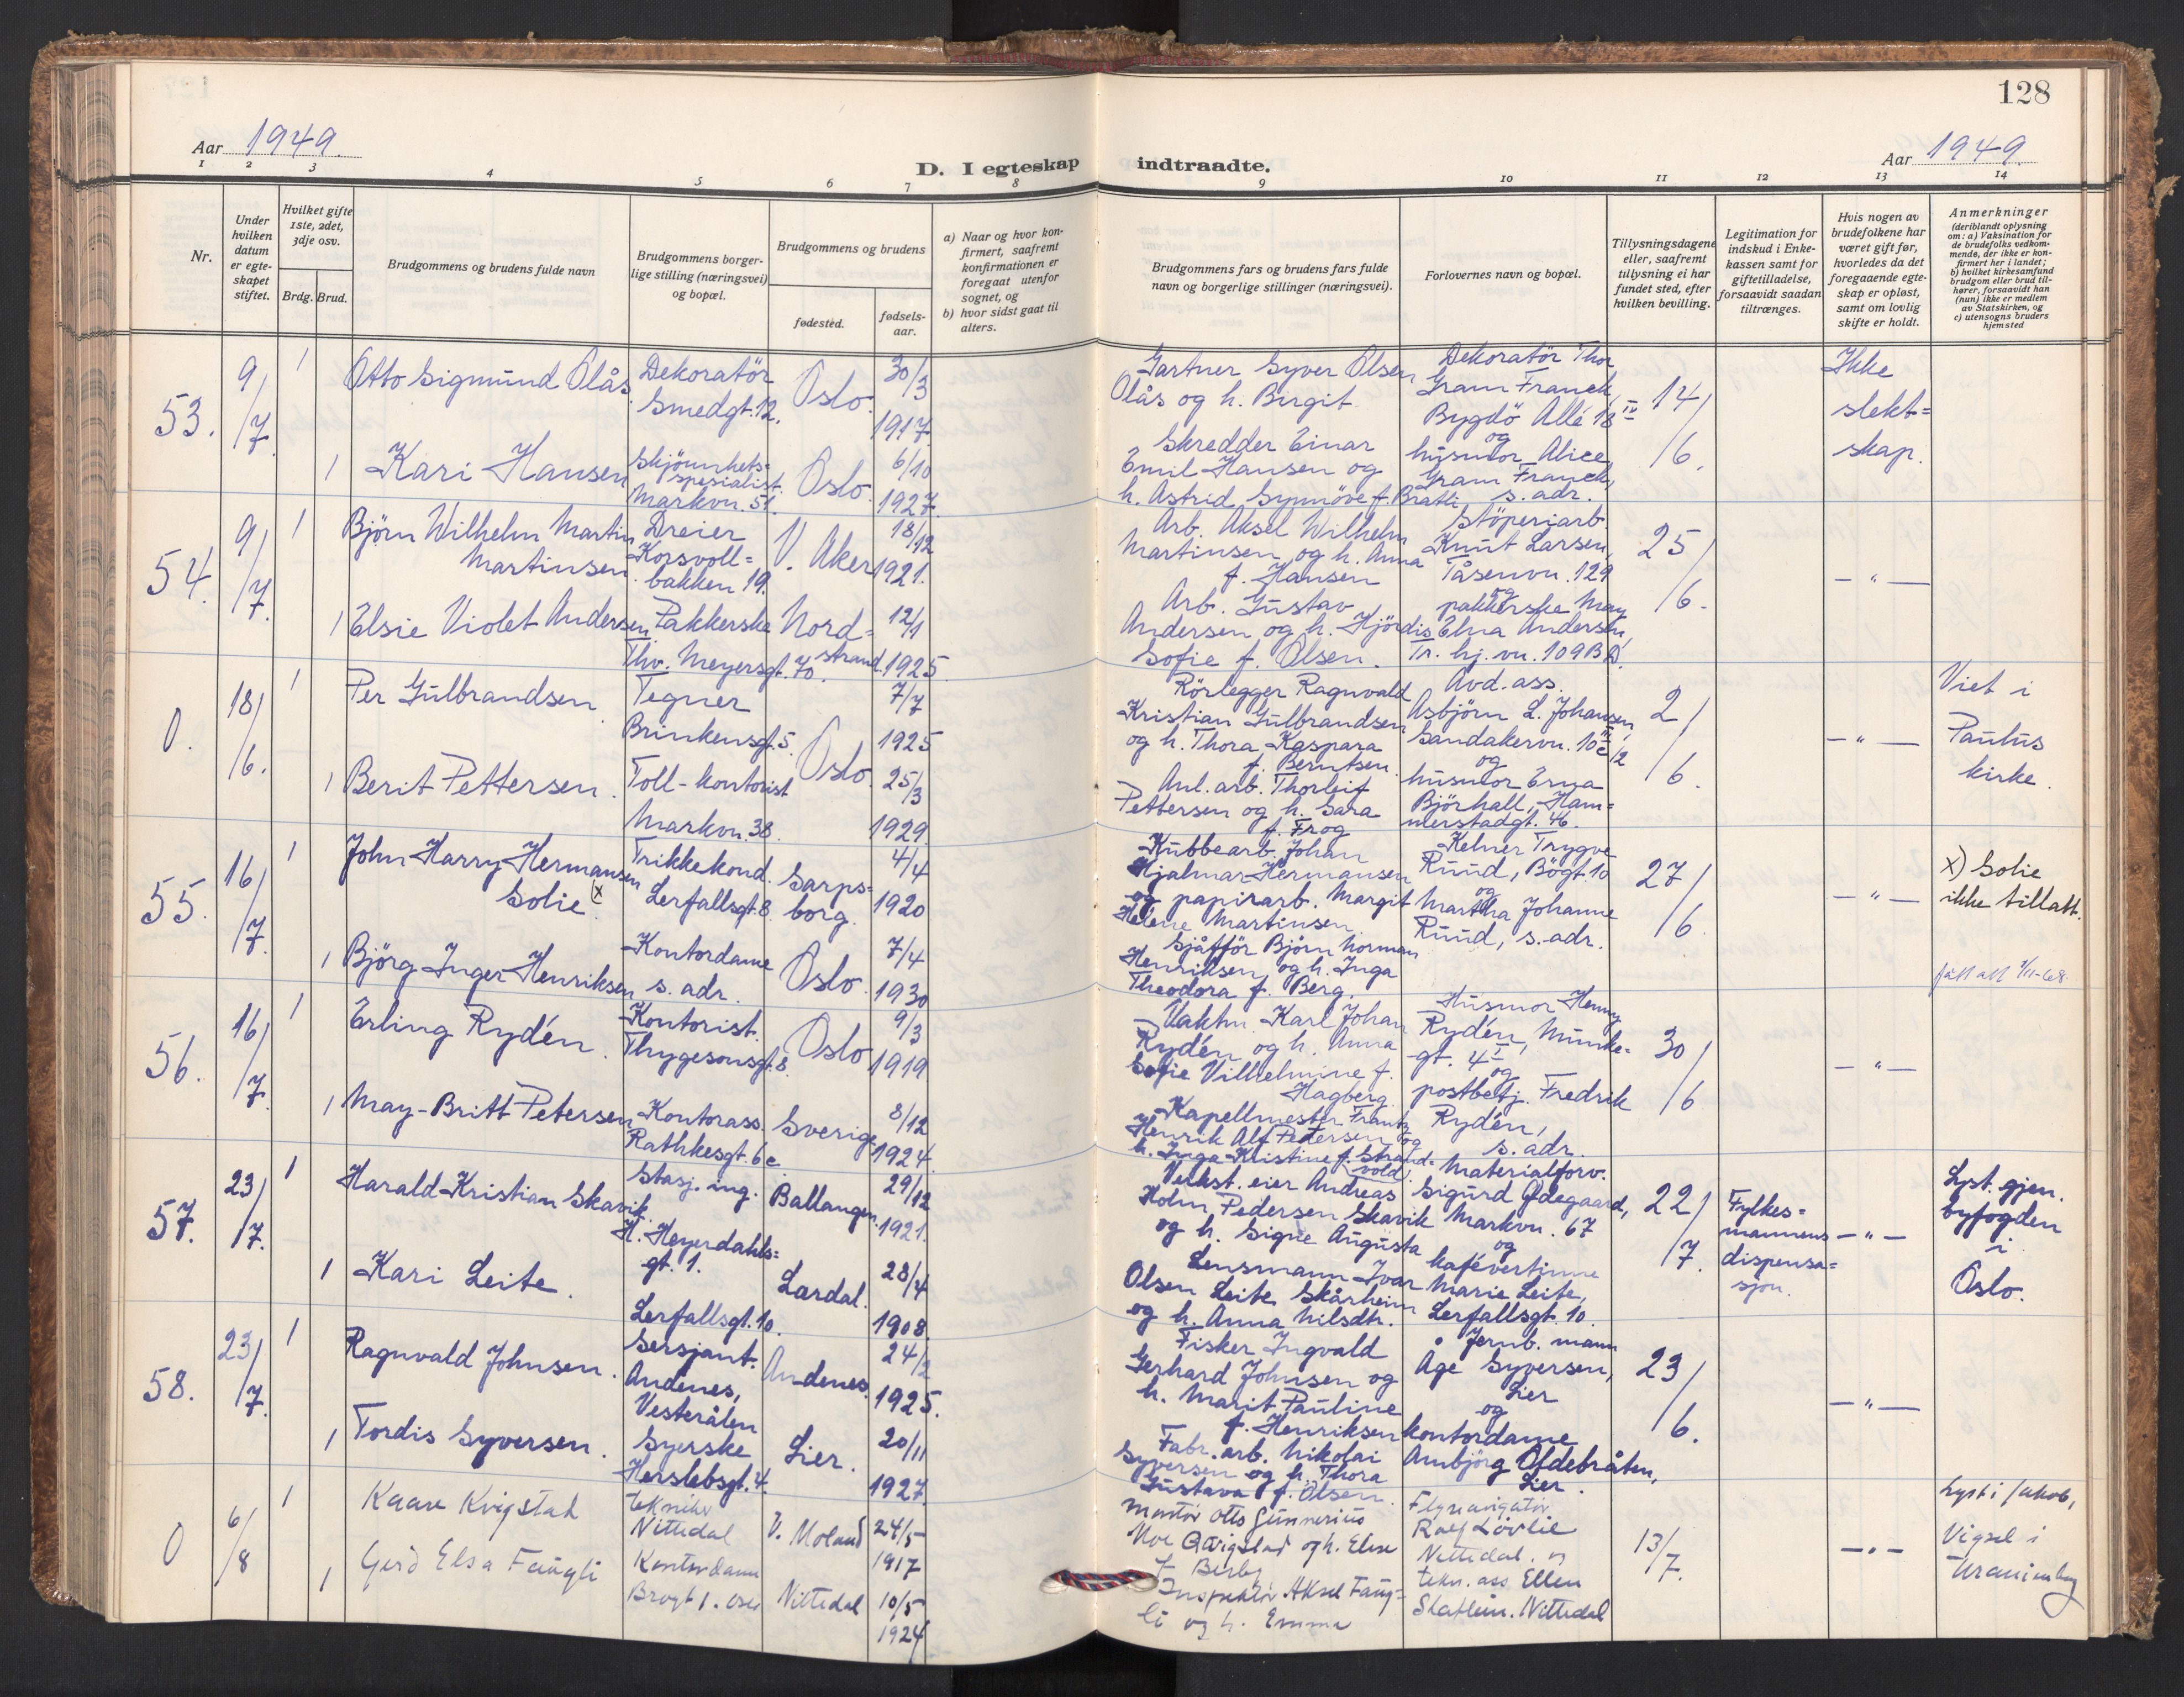 128
Aar 1949.
D. I egteskap indtraadte.
Aar 1949.
1 2 3 4 5 6 7 8 9 10 11 12 13 14
Nr.
Under hvilken datum er egteskapet stiftet.
Hvilket gifte 1ste, 2det, 3dje osv.
Brdg. Brud.
Brudgommens og brudens fulde navn
Brudgommens borgerlige stilling (næringsvei) og bopæl.
Brudgommens og brudens
fødested.
fødselsaar.
a) Naar og hvor konfirmert, saafremt konfirmationen er foregaat utenfor sognet, og
b) hvor sidst gaat til alters.
Brudgommens fars og brudens fars fulde navn og borgerlige stillinger (næringsvei).
Forlovernes navn og bopæl.
Tillysningsdagene eller, saafremt tillysning ei har fundet sted, efter hvilken bevilling.
Legitimation for indskud i Enkekassen samt for giftetilladelse, forsaavidt saadan tiltrænges.
Hvis nogen av brudefolkene har været gift før, hvorledes da det foregaaende egteskap er opløst, samt om lovlig skifte er holdt.
Anmerkninger (deriblandt oplysning om: a) Vaksination for de brudefolks vedkommende, der ikke er konfirmert her i landet; b) hvilket kirkesamfund brudgom eller brud tilhører, forsaavidt han (hun) ikke er medlem av Statskirken, og c) utensogns bruders hjemsted
53. 9/7. 1 Otto Sigmund Olås. Dekoratör Smedgt. 12. Oslo. 30/3 1917.
Gartner Syver Olsen Olås og h. Birgit
Dekoratör Thor Gram Franck, Bygdö Allé 18 IV og
14/6.
Ikke slekt=skap.
1 Kari Hansen Skjönnhets=spesialist. Markvn. 51. Oslo. 6/10 1927.
Skredder Einar Emil Hansen og h. Astrid Synnöve f. Bratli
husmor Alice Gram Franck, s. adr.
54. 9/7. 1 Björn Wilhelm Martin Martinsen. Dreier Korsvoll=bakken 19. V. Aker 18/12 1921.
Arb. Aksel Wilhelm Martinsen og h. Anna f. Hansen
Støperiarb. Knut Larsen, Tåsenvn. 129 og
25/6.
— " —
1 Elsie Violet Andersen Pakkerske Thv. Meyersgt. 70. Nord=strand. 12/1 1925.
Arb. Gustav Andersen og h. Hjördis Sofie f. Olsen.
pakkerske May Elna Andersen, Tr. hj. vn. 109 B
0. 18/6. 1 Per Gulbrandsen Tegner Brinkensgt. 5. Oslo. 7/7 1925
Rörlegger Ragnvald Kristian Gulbrandsen og h. Thora Kaspara f. Berntsen.
Avd. ass. Asbjörn L. Johansen, Sandakervn. 10 og
2/6.
— " —
Viet i Paulus kirke.
1 Berit Pettersen. Toll-kontorist Markvn. 38. 25/3 1929.
Anl. arb. Thorleif Pettersen og h. Sara f. Frog
husmor Erna Björhall, Ham=merstadgt. 46.
55. 16/7. 1 John Harry Hermansen Solie. (x Trikkekond. Lerfallsgt. 8. Sarps=borg. 4/4 1920
Kubbearb. Johan Hjalmar Hermansen og papirarb. Margit Helene Martinsen.
Kelner Trygve Ruud, Bögt. 10 og
27/6
— " —
x) Solie ikke tillatt.
1 Björg Inger Henriksen Kontordame s. adr. Oslo. 7/4 1930
Sjåfför Björn Norman Henriksen, og h. Inga Theodora f. Berg.
Martha Johanne Ruud, s. adr.
56. 16/7. 1 Erling Rydén. Kontorist. Thygesonsgt. 8. Oslo 9/3 1919
Vaktm. Karl Johan Rydén og h. Anna Sofie Vilhelmine f. Hagberg.
Husmor Henny Rydén, Munke=gt. 4 I og
30/6
— " —
1 May-Britt Petersen, Kontorass. Rathkesgt. 6 c. Sverige 8/12 1924.
Kapellmester Frantz Henrik Alf Pedersen og h. Inga Kristine f. Strand=vold.
postbetj. Fredrik Rydén, s. adr.
57. 23/7. 1 Harald Kristian Skavik. Stasj. ing. H. Heyerdahls=gt. 1. Ballangen. 29/12 1921.
Verkst. eier Andreas Holm Pedersen Skavik og h. Signe Augusta
Materialforv. Sigurd Ødegaard, Markvn. 67 og
22/7.
Fylkes=mannens dispensa=sjon.
— " —
Lyst. gjen. byfogden i Oslo.
1 Kari Leite. Lerfallsgt. 10. Lardal. 28/4 1908.
Lensmann Ivar Olsen Leite Skårheim og h. Anna Nilsdtr.
kafévertinne Marie Leite, Lerfallsgt. 10.
58. 23/7. 1 Ragnvald Johnsen. Sersjant. Andenes, Vesterålen Andenes. 24/2 1925.
Fisker Ingvald Gerhard Johnsen og h. Marit Pauline f. Henriksen
Jernb. mann Åge Syversen, Lier og
23/6.
— " —
1 Tordis Syversen. Syerske Herslebsgt. 4. Lier. 20/11 1927.
Fabr. arb. Nikolai Syversen og h. Thora Gustava f. Olsen.
kontordame Ambjörg Oldebråten, Lier.
0 6/8 1 Kaare Kvigstad tekniker Nittedal V. Moland 24/5 1917
Montør Otto Gunnerius Moe Qvigstad og h. Elise f. Berby
Flynavigatör Rolf Lövlie Nittedal. og
13/7.
— " —
Lyst i Jakob, Vigsel i Uranienborg
1 Gerd Elsa Faugli Kontordame Brogt 1. Oslo Nittedal 10/5 1924
Inspektör Aksel Faug=li og h. Emma
tekn. ass Ellen Nittedal